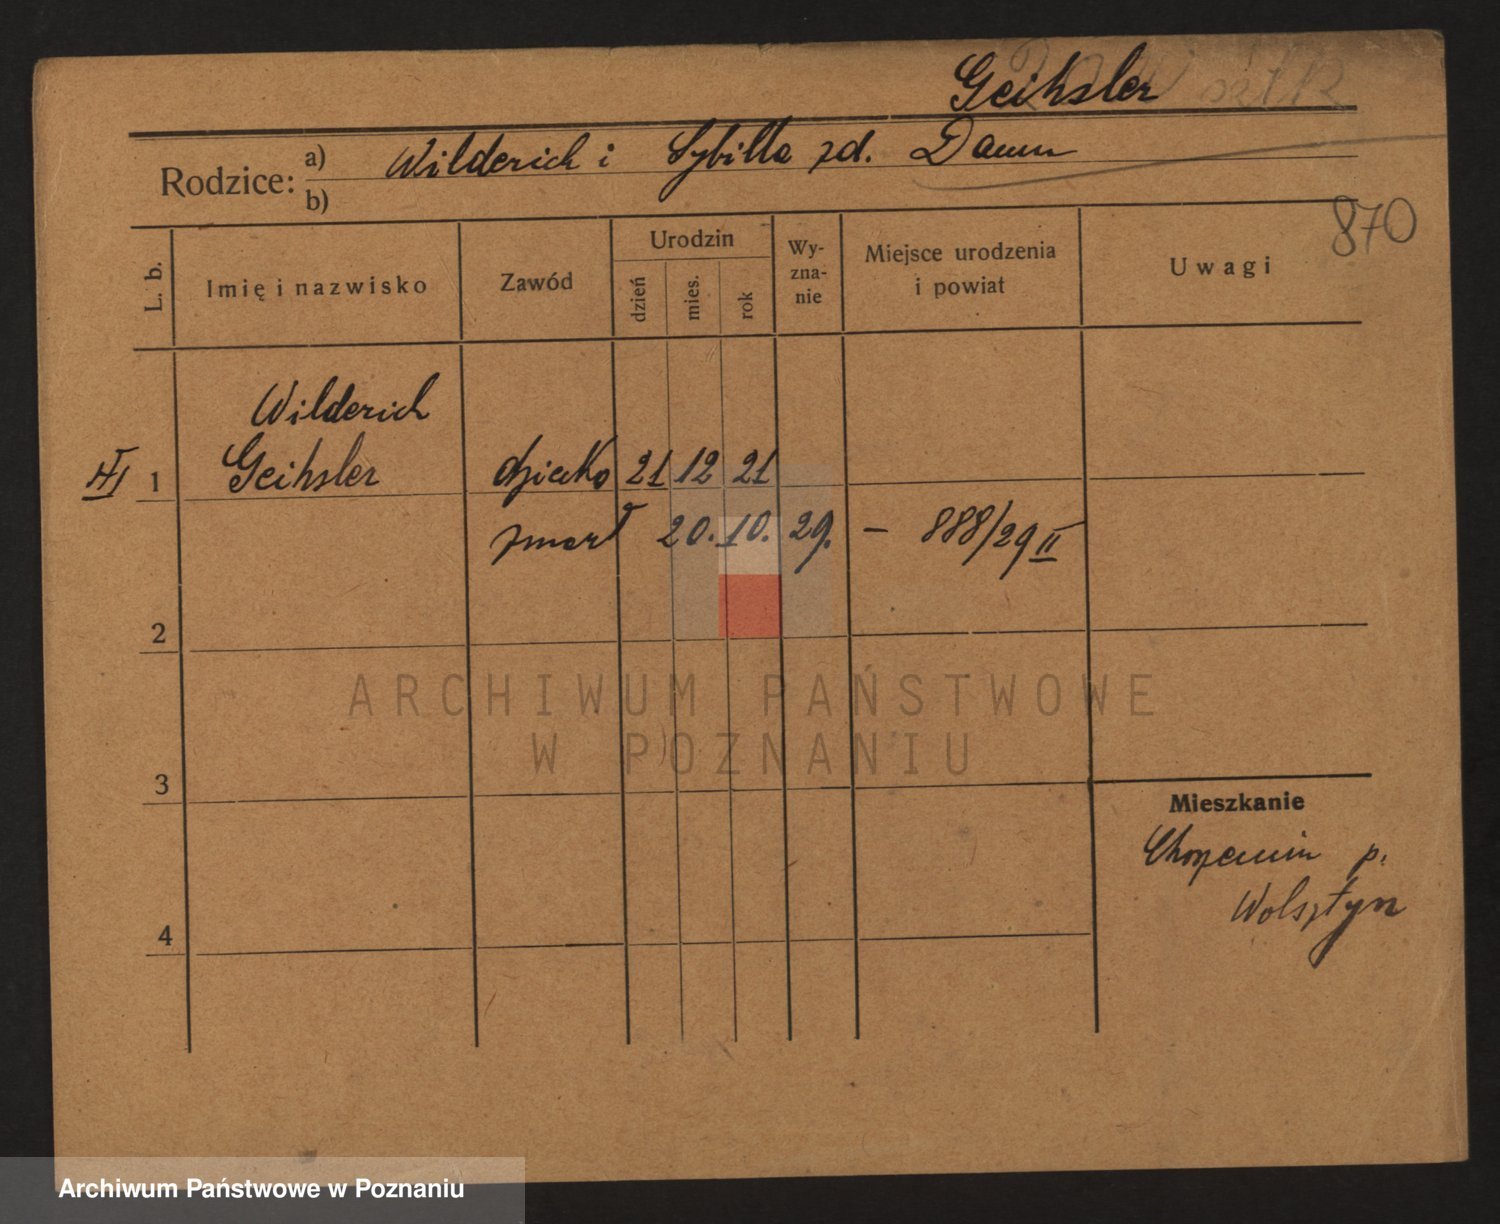 Geihsler
Rodzice: a) Wilderich i Sybilla zd. Damm
b)
870
L. b.
Imię i nazwisko
Zawód
Urodzin
dzień
mies.
rok
Wy-
zna-
nie
Miejsce urodzenia
i powiat
Uwagi
Wilderich
1 Geihsler dziecko 21 12 21
zmarł 20. 10. 29. — 888/29 II
2
3
4
Mieszkanie
p.
Wolsztyn
ARCHIWUM PAŃSTWOWE
W POZNANIU
Archiwum Państwowe w Poznaniu